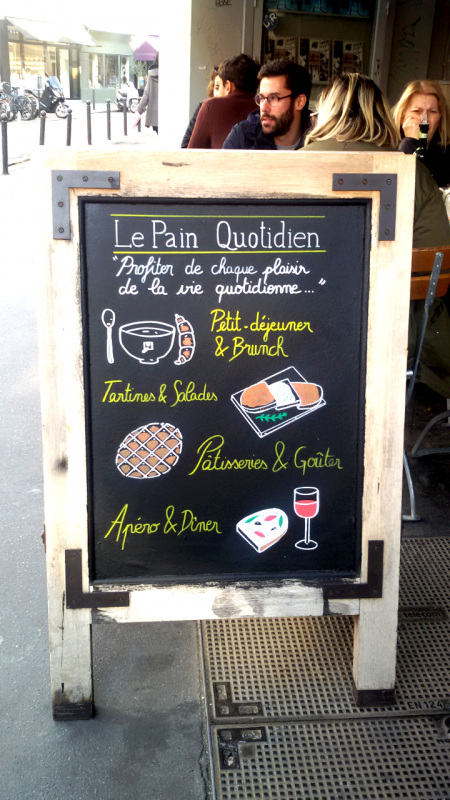 Le Pain Quotidien
"Profiter de chaque plaisir
de la vie quotidienne..."
Petit-déjeuner
& Brunch
Tartines & Salades
Pâtisseries & Goûter
Apéro & Dîner
EN 124